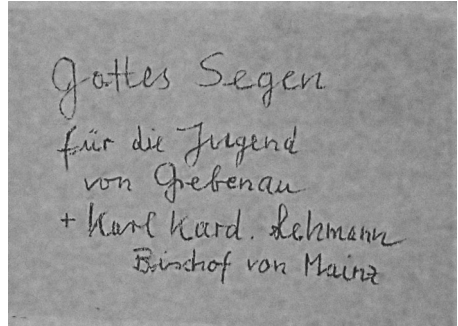 Gottes Segen
für die Jugend
von Grebenau
+ Karl Kard. Lehmann
Bischof von Mainz